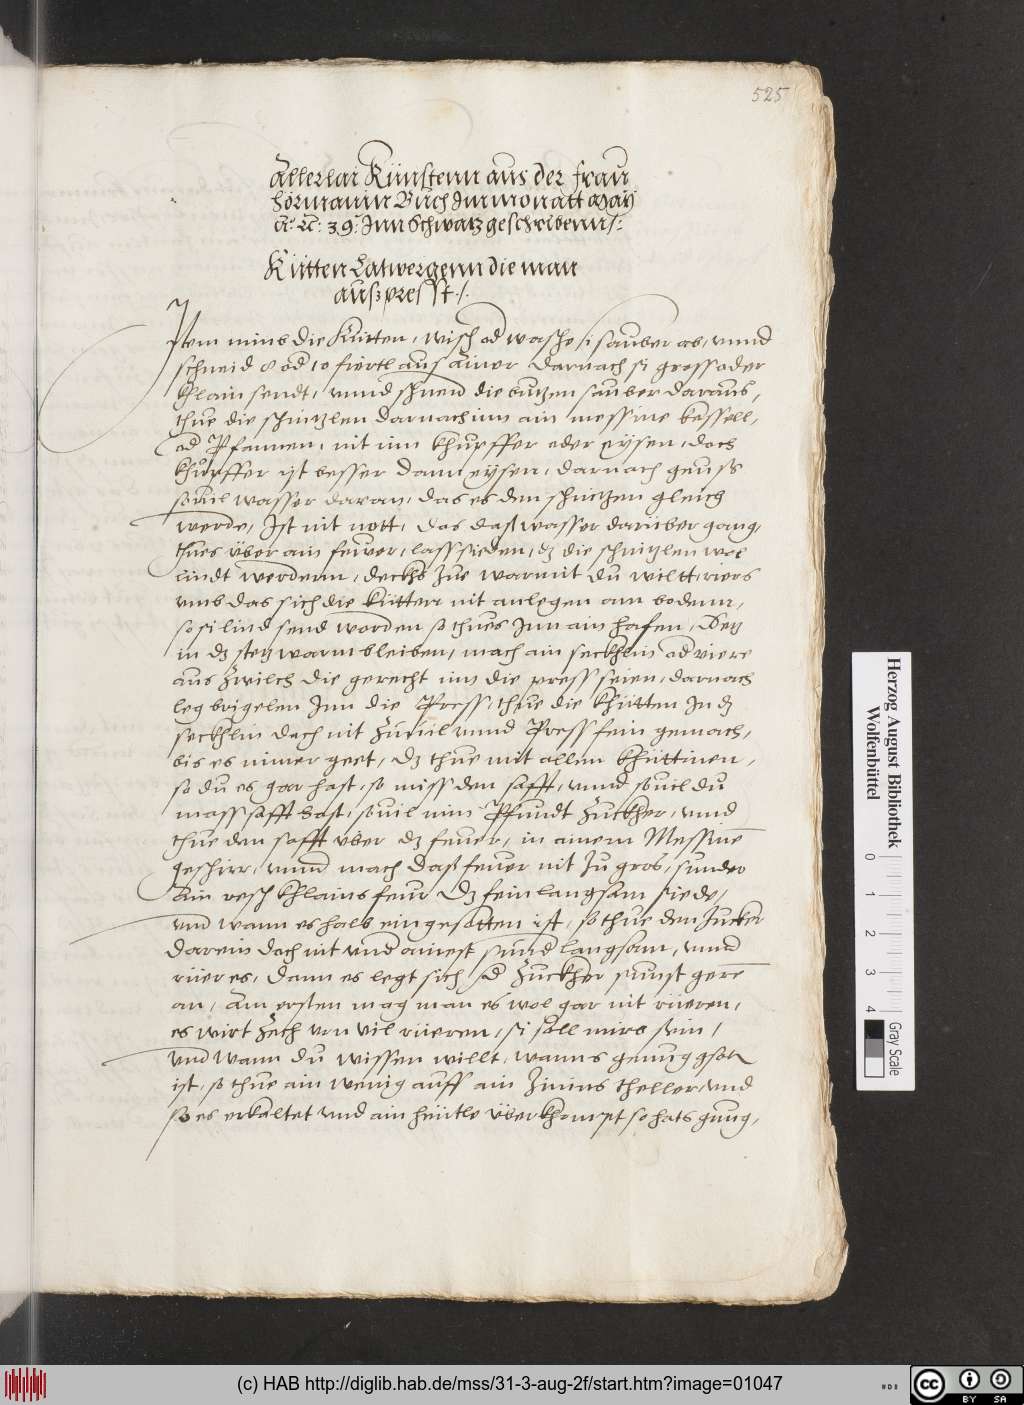 525
Allerlai Künstenn aus der frau
Hörmanin Buch Im monatt May
Aº. rc. 39. Inn Schwatz geschribenn /:
Kütten Latwergenn die man
außpresst ./.
Item nimb die Kütten, wisch od wasche si sauber ab, vnnd
schneid 8 od 10 fiertl aus ainer darnach si gross oder
Klain sendt, vnnd schneid die butzen sauber daraus,
thue die schnitzlen darnach inn ain messine kessell,
od Pfannen, nit inn khupffer oder eysen, doch
khupffer ist besser dann eysen, darnach geuss
souil wasser daran, das es den schnitzen gleich
werde, Ist nit nott, das das wasser darüber gang,
thues über ain feuer, lass sieden, dz die schnitzlen wol
lindt werdenn, deckhs zue warmit du wiltt, riers
vmb das sich die kütten nit anlegen am bodenn,
so si lind send worden so thues Inn ain hafen, Setz
in dz stetz warm bleiben, mach ain seckhlin od viere
aus Zwilch die gerecht inn die press seien, darnach
leg brigelen Inn die Press, thue die khütten In dz
seckhlin doch nit Zuuil vnnd Press fein gemach,
bis es nimer geet, dz thue mit allen khüttinen,
so du es gar hast, so miss den safft, vnnd souil du
mass safft hast, souil nim Pfundt Zuckher, vnnd
thue den safft vber dz feuer, in ainem Messine
geschirr, vnnd mach das feuer nit Zu gros, sunder
Ain resch khlains feur dz fein langsam siede,
vnd wann es halb eingesotten ist, so thue den Zucker
darein doch nit vnd ainest sunnd langsam, vnnd
rüer es, dann es legt sich sd Zuckher sunnst gere
an, Am ersten mag man es wol gar nit rüeren,
es wirt Zech von vil rüeren, si soll mirb sein,
vnd wann du wissen willt, wanns genueg gsotn
ist, so thue ain wenig auff ain Zinins theller, vnd
so es erkaltet vnd ain heütle überkhompt so hats gnug,
Herzog August Bibliothek
Wolfenbüttel
0 1 2 3 4
Gray Scale
(c) HAB http://diglib.hab.de/mss/31-3-aug-2f/start.htm?image=01047
cc BY SA